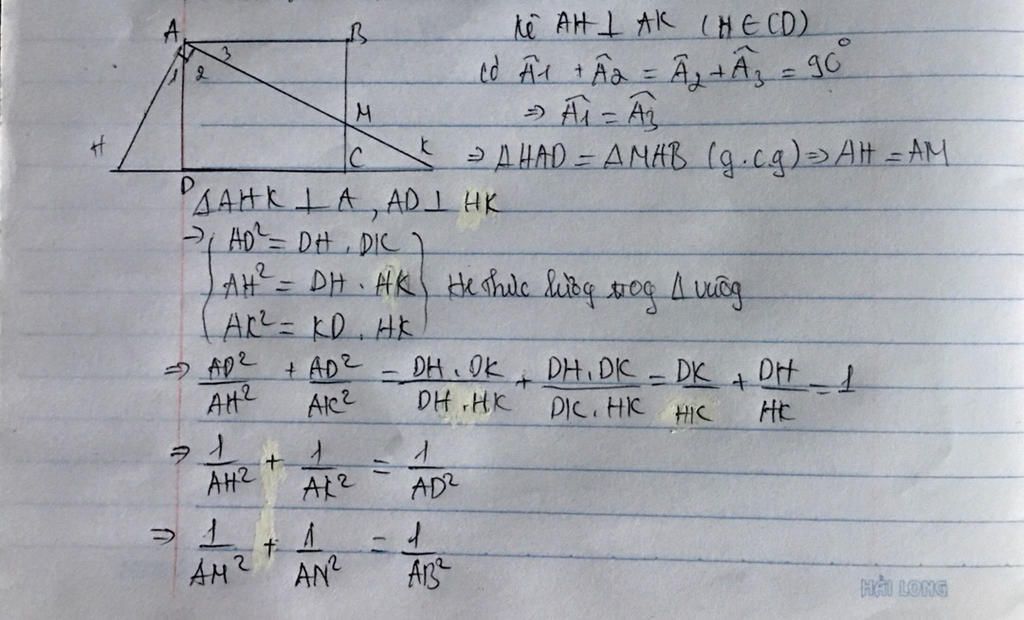 A B
1 2 3
M
H K
D C
Kẻ AH ⊥ AK (H ∈ CD)
Có Â1 + Â2 = Â2 + Â3 = 90°
⇒ Â1 = Â3
⇒ ΔHAD = ΔMAB (g.c.g) ⇒ AH = AM
ΔAHK ⊥ A, AD ⊥ HK
⇒ AD² = DH . DK
AH² = DH . HK Hệ thức lượng trog Δ vuôg
AK² = KD . HK
⇒ AD²/AH² + AD²/AK² = DH . DK/DH . HK + DH . DK/DK . HK = DK/HK + DH/HK = 1
⇒ 1/AH² + 1/AK² = 1/AD²
⇒ 1/AM² + 1/AN² = 1/AB²
HẢI LONG